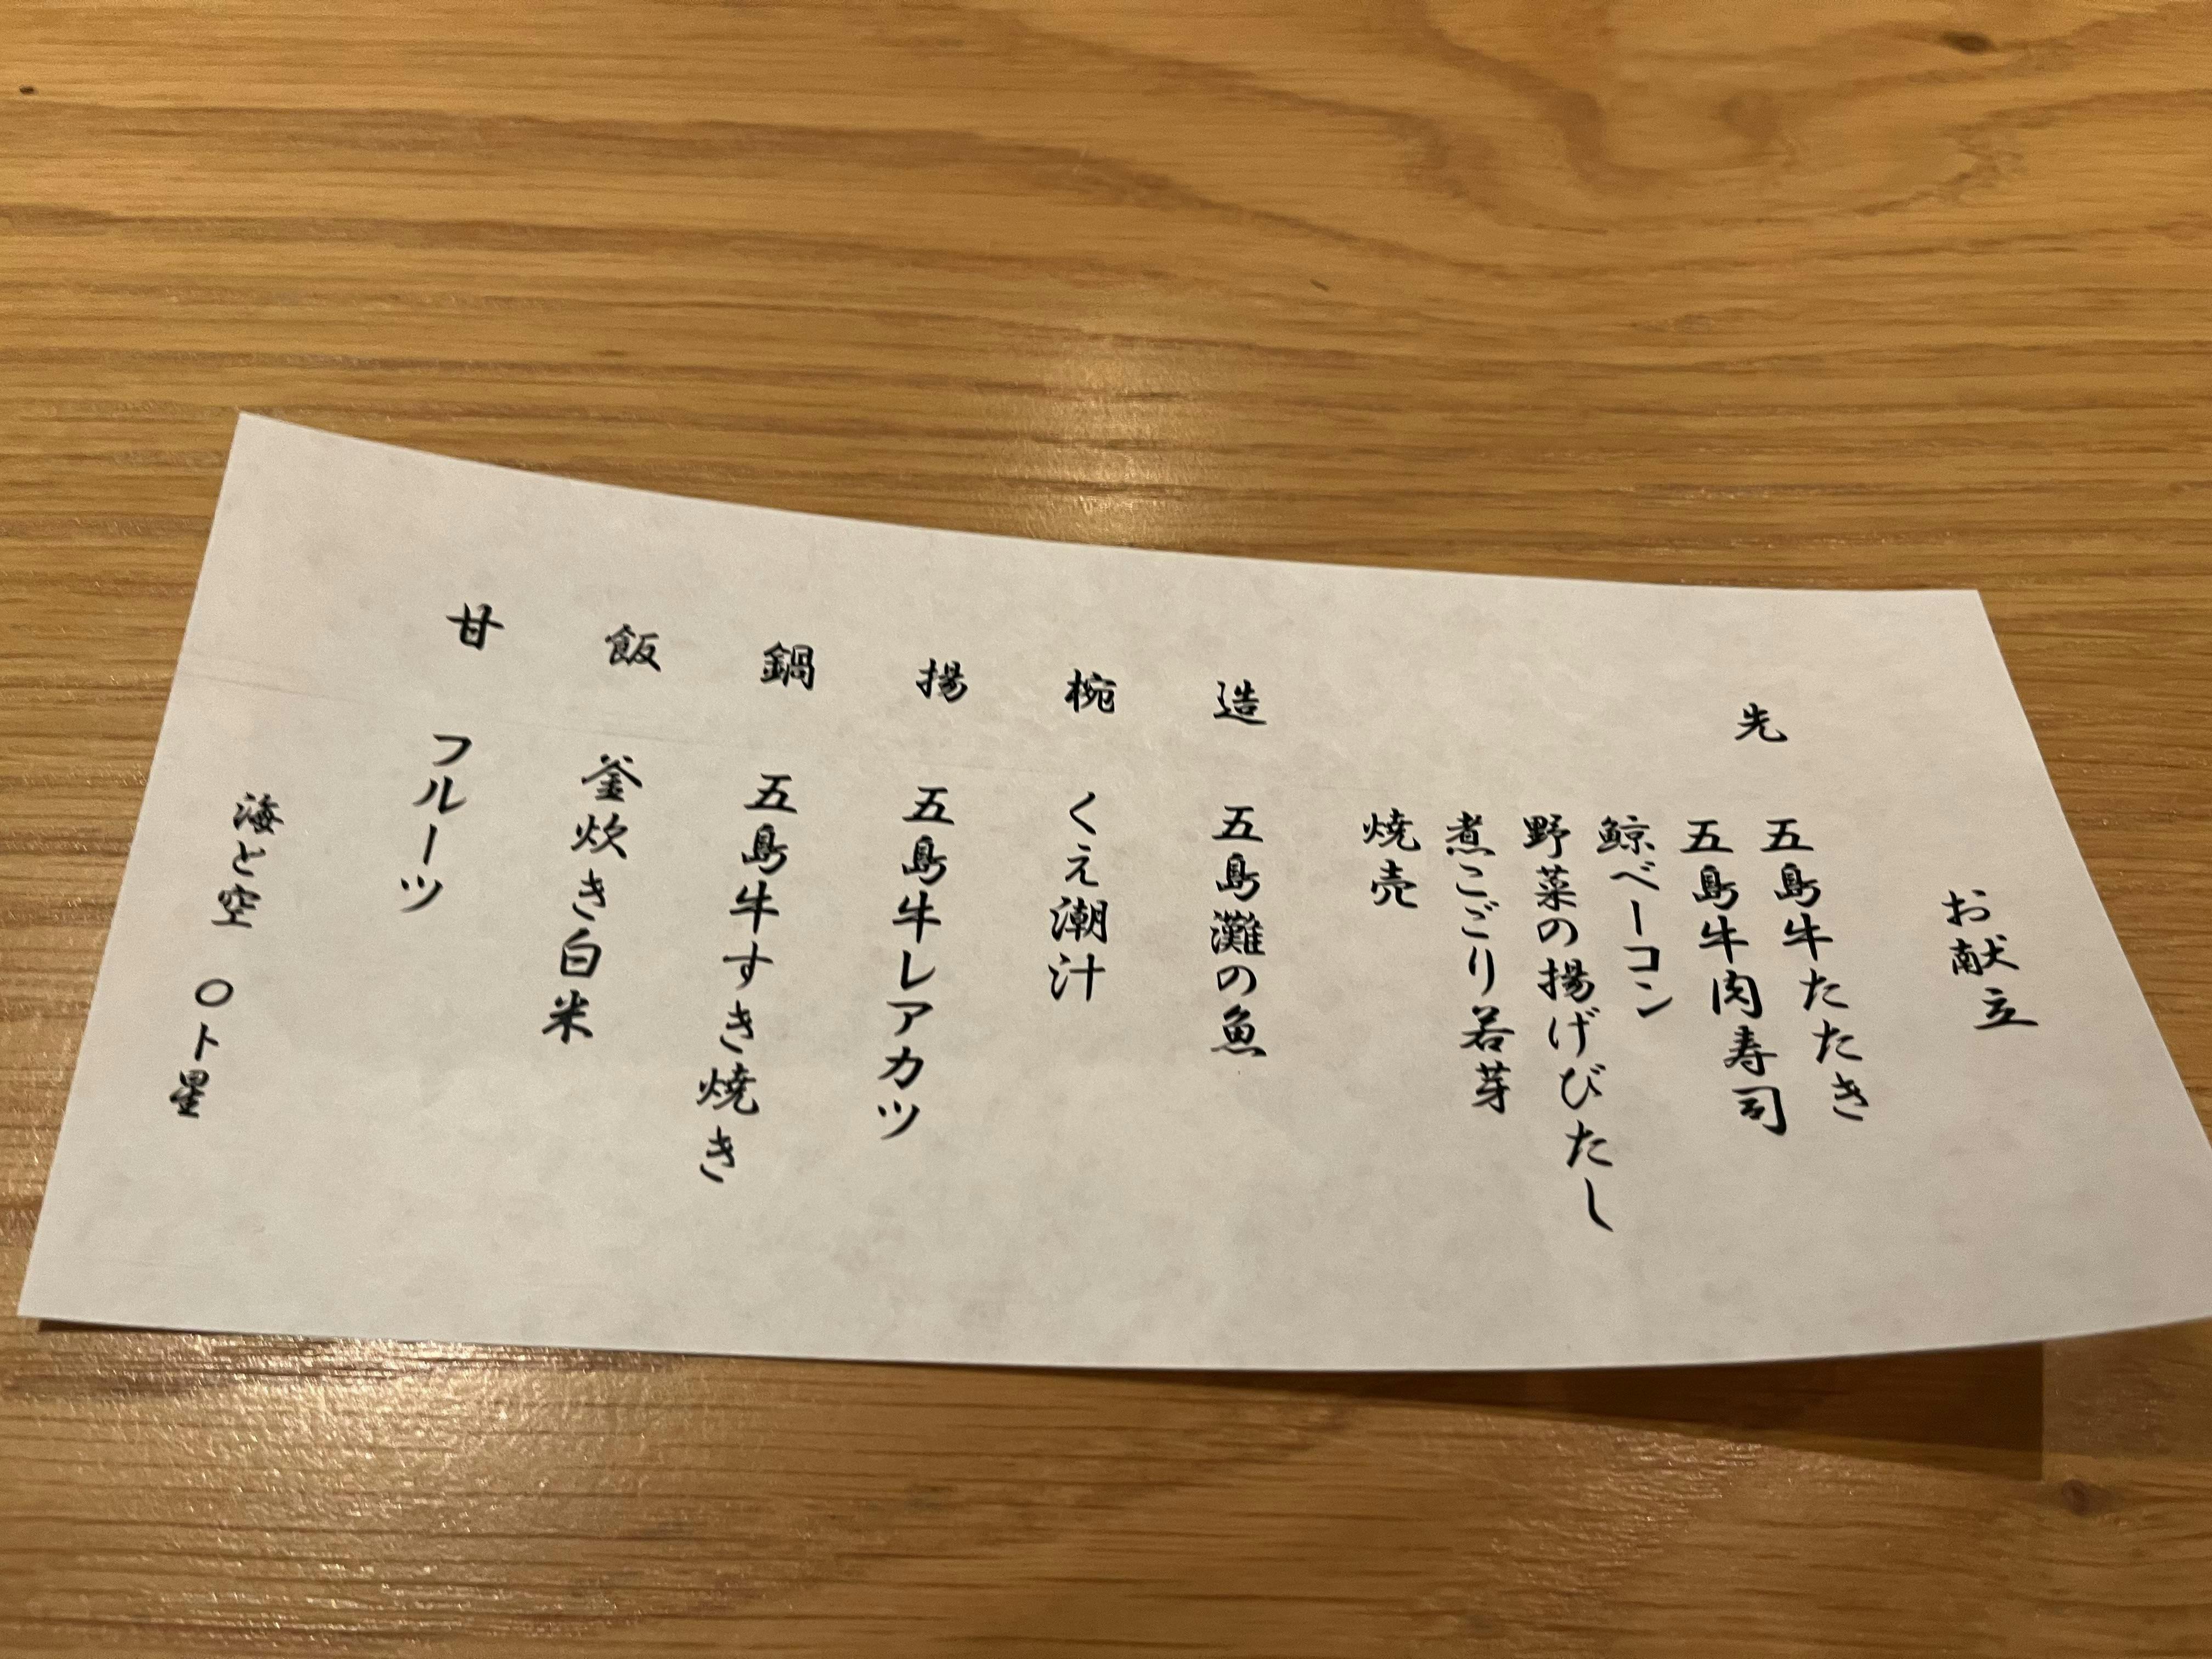 お献立
先 五島牛たたき
五島牛肉寿司
鯨ベーコン
野菜の揚げびたし
煮こごり若芽
焼売
造 五島灘の魚
椀 くえ潮汁
揚 五島牛レアカツ
鍋 五島牛すき焼き
飯 釜炊き白米
甘 フルーツ
海と空 〇ト星